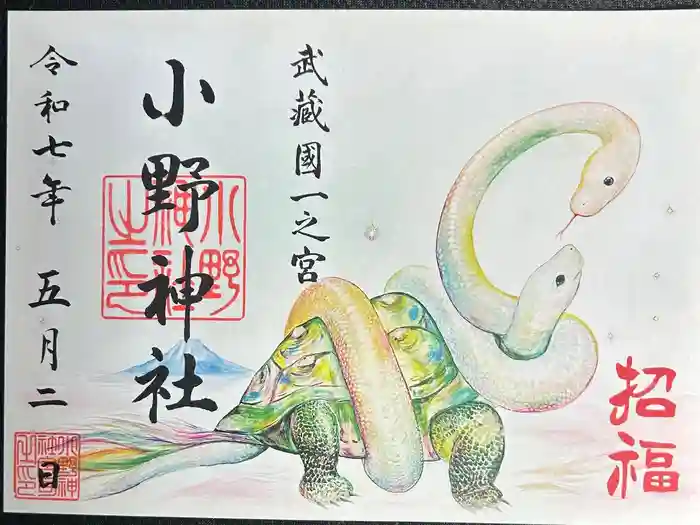 武藏國一之宮
小野神社
令和七年 五月二日
招福
小野神社之印